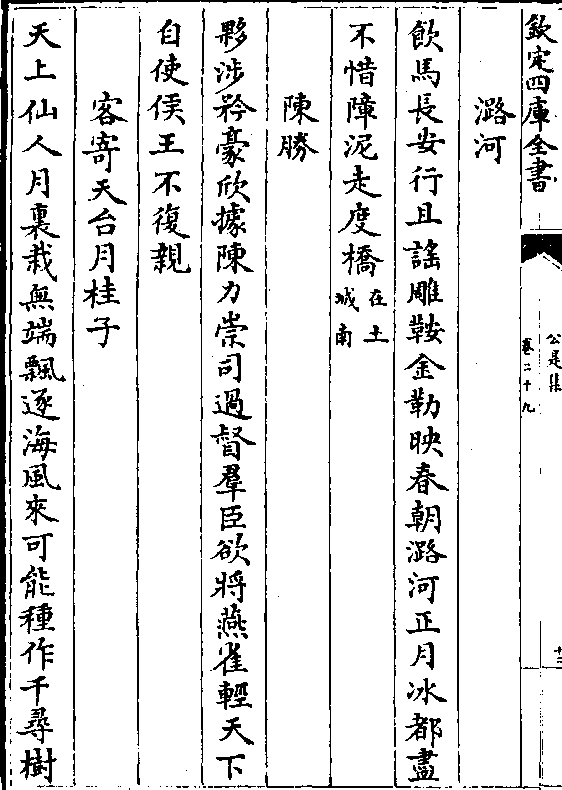 欽定四庫全書
公是集
卷二十九
十三
潞河
飲馬長安行且謡雕鞍金勒映春朝潞河正月冰都盡
不惜障泥走度橋在土城南
陳勝
夥涉矜豪欣據陳力崇司過督羣臣欲將燕雀輕天下
自使侯王不復親
客寄天台月桂子
天上仙人月裏栽無端飄逐海風來可能種作千尋樹